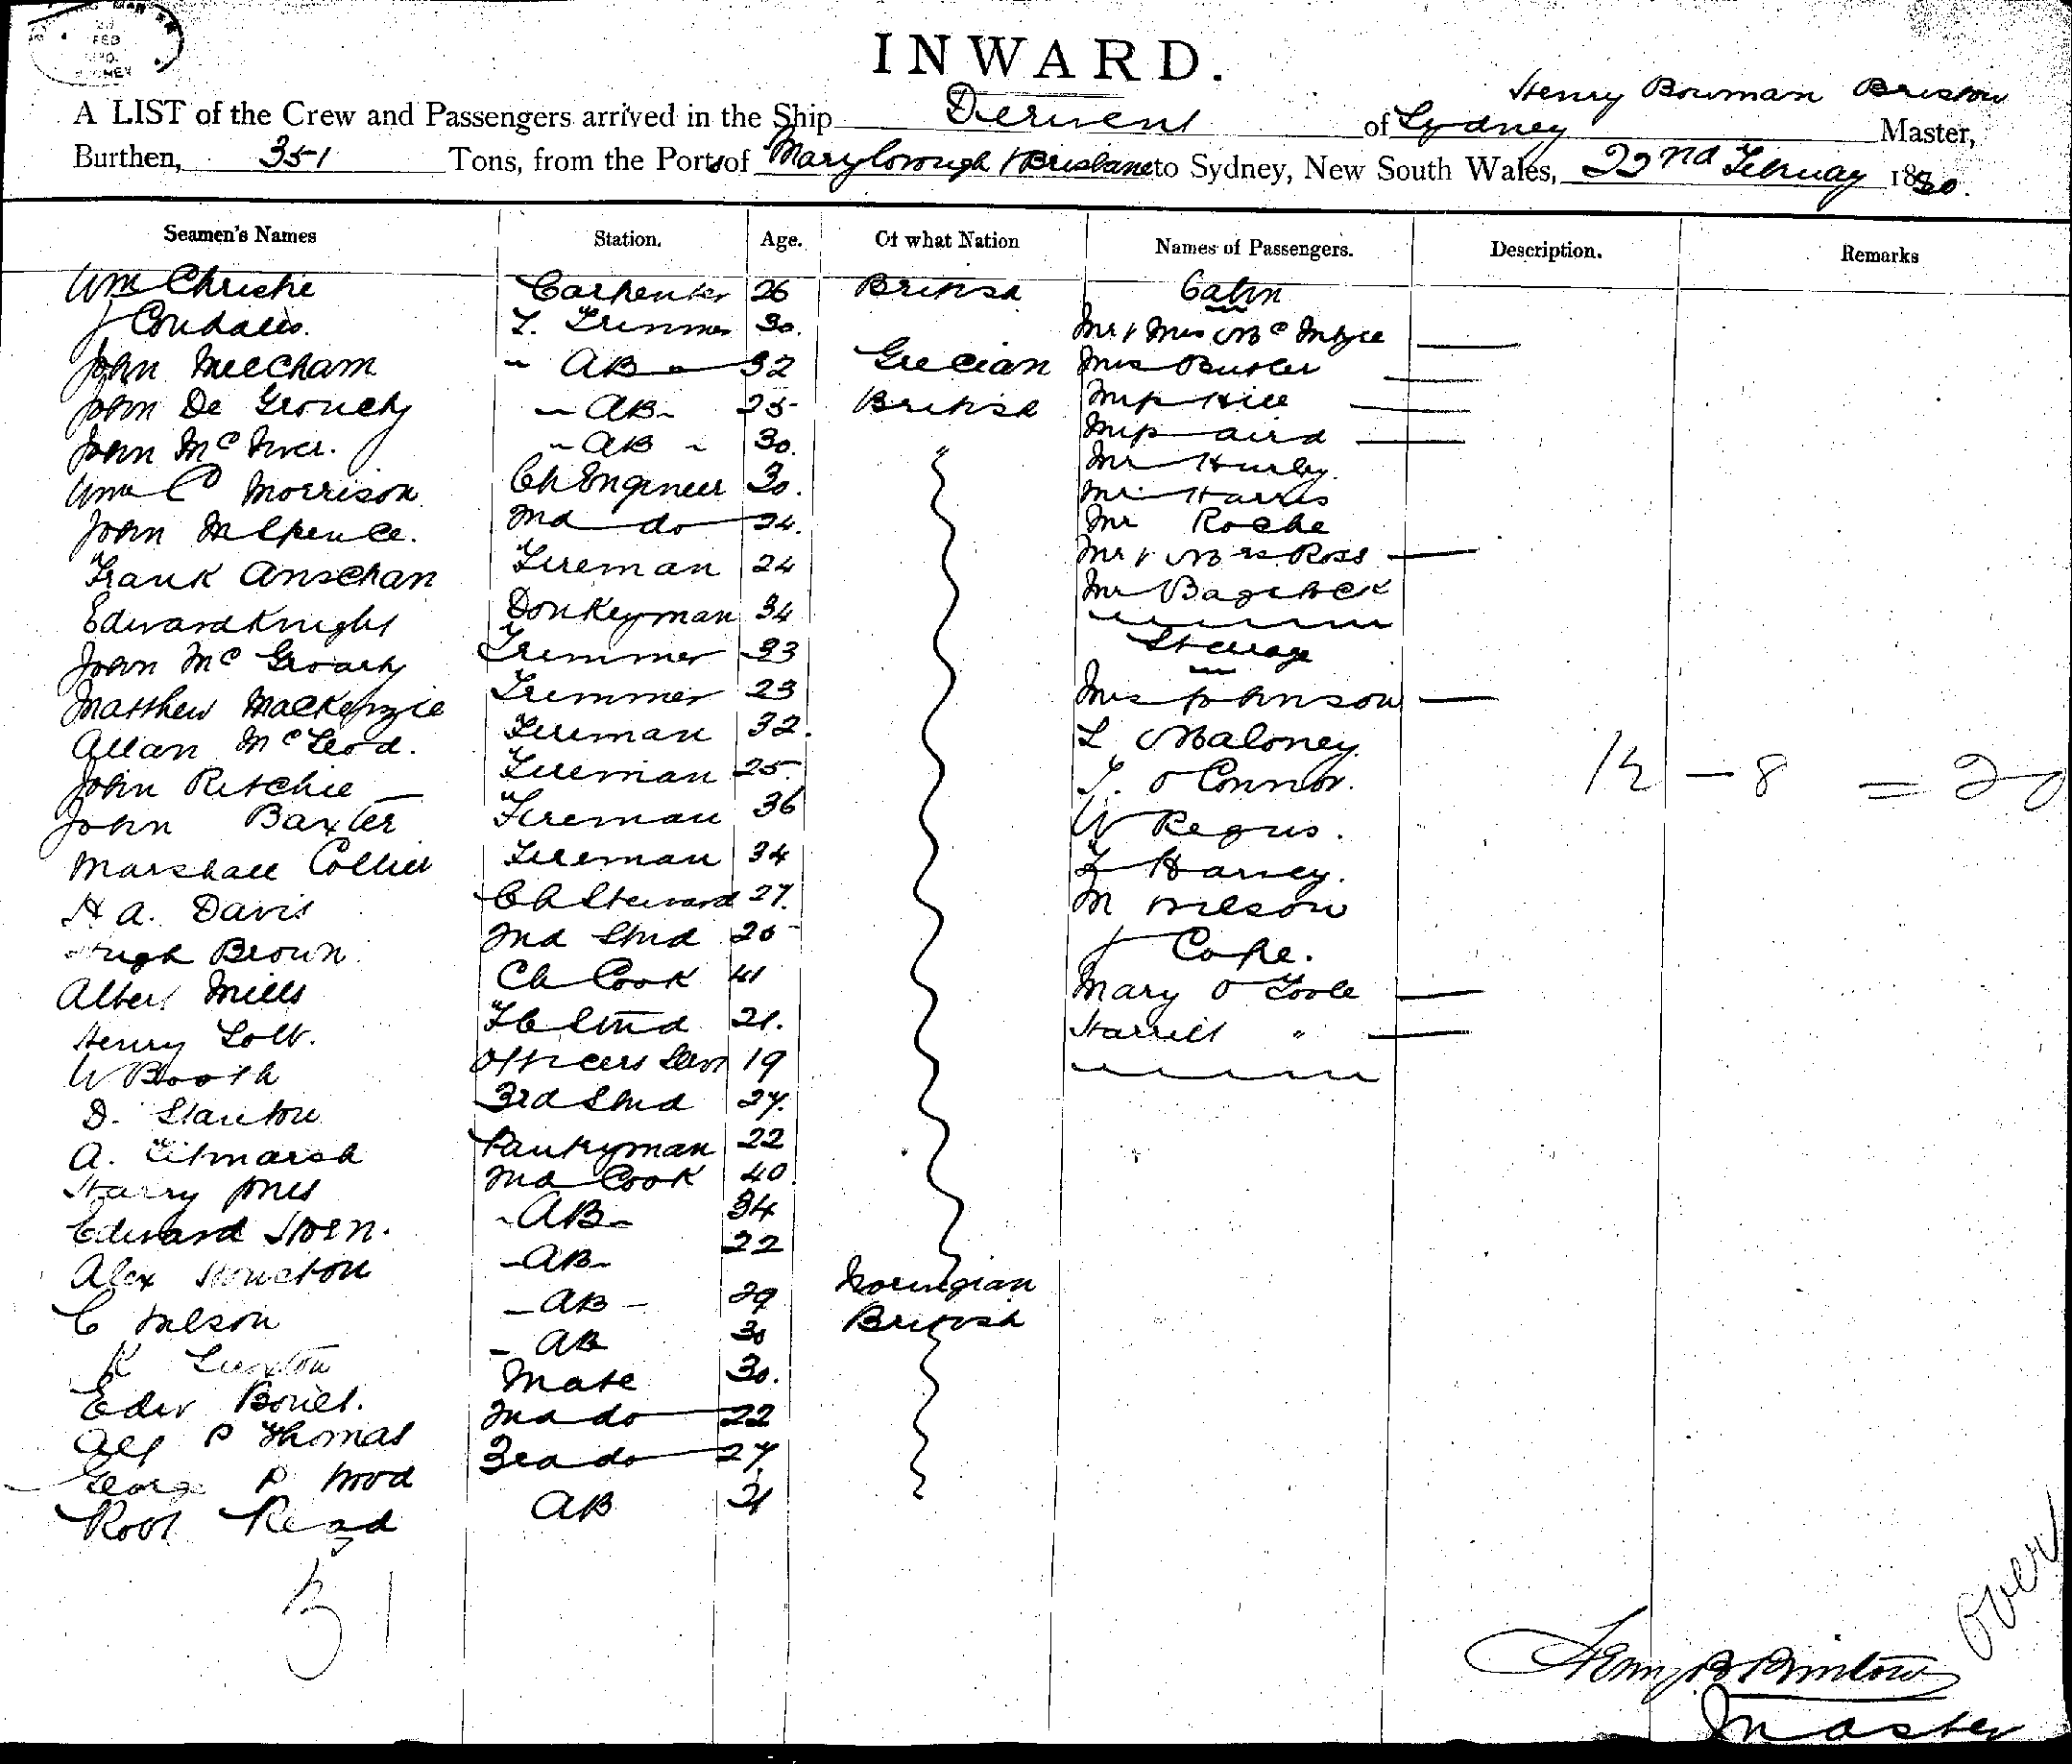 INWARD.
Henry Bowman Bristow
A LIST of the Crew and Passengers arrived in the Ship Derwent of Sydney Master,
Burthen, 351 Tons, from the Ports of Maryborough & Brisbane to Sydney, New South Wales, 22nd February 1880.
Seamen's Names Station. Age. Of what Nation Names of Passengers. Description. Remarks
Wm Christie Carpenter 26 British Cabin
J 30. Mr & Mrs McIntyre
John Meecham AB 32 Grecian Mrs Butler
John De Grouchy AB 25 British Miss Hill
John McIver. AB 30. " Miss Aird
Wm C Morrison Ch Engineer 30. Mr Hurley
John M Spence. 2nd do 24. Mr Harris
Frank Anschan Fireman 24 Mr Roche
Edward Knight Donkeyman 34 Mr & Mrs Ross
John McGroarty Trimmer 33 Mr
Matthew Mackenzie Trimmer 23 Steerage
Allan McLeod. Fireman 32. Mrs Johnson
John Ritchie Fireman 25. L Maloney
John Baxter Fireman 36 T. O'Connor.
Marshall Collier Fireman 34 W Regus.
H A. Davis Ch Steward 27. Harvey.
Hugh Brown 2nd Stwd 25 M Wilson
Albert Mills Ch Cook 41 J Cope.
Henry Stwd 21. Mary O'Toole
W Booth Officers 19 Harriet "
D. Stanton 3rd Stwd 27.
A. Titmarsh Pantryman 22
Harry Jones 2nd Cook 40.
Edward AB 34
Alex AB 22
C Nelson AB 29 Norwegian
K AB 30 British
Edw Mate 30.
Alf P Thomas 2nd do 22
George P Wood 3rd do 27
Robt Read AB 21
12 - 8 = 20
31
Over
Henry B Bristow
Master